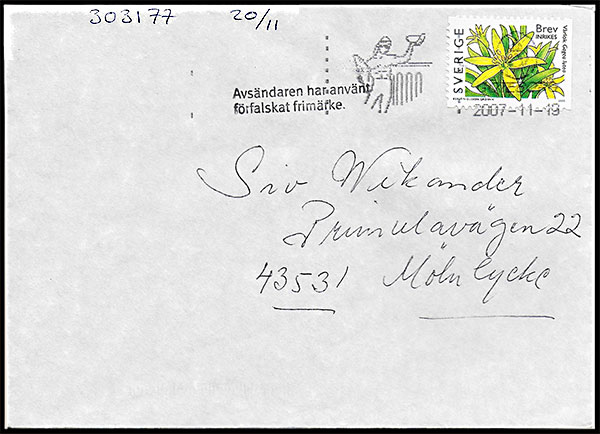 303177 20/11
SVERIGE
Brev
INRIKES
Vårlök Gagea lutea
Avsändaren har använt
förfalskat frimärke.
2007-11-19
Siv Wikander
Primulavägen 22
43531 Mölnlycke